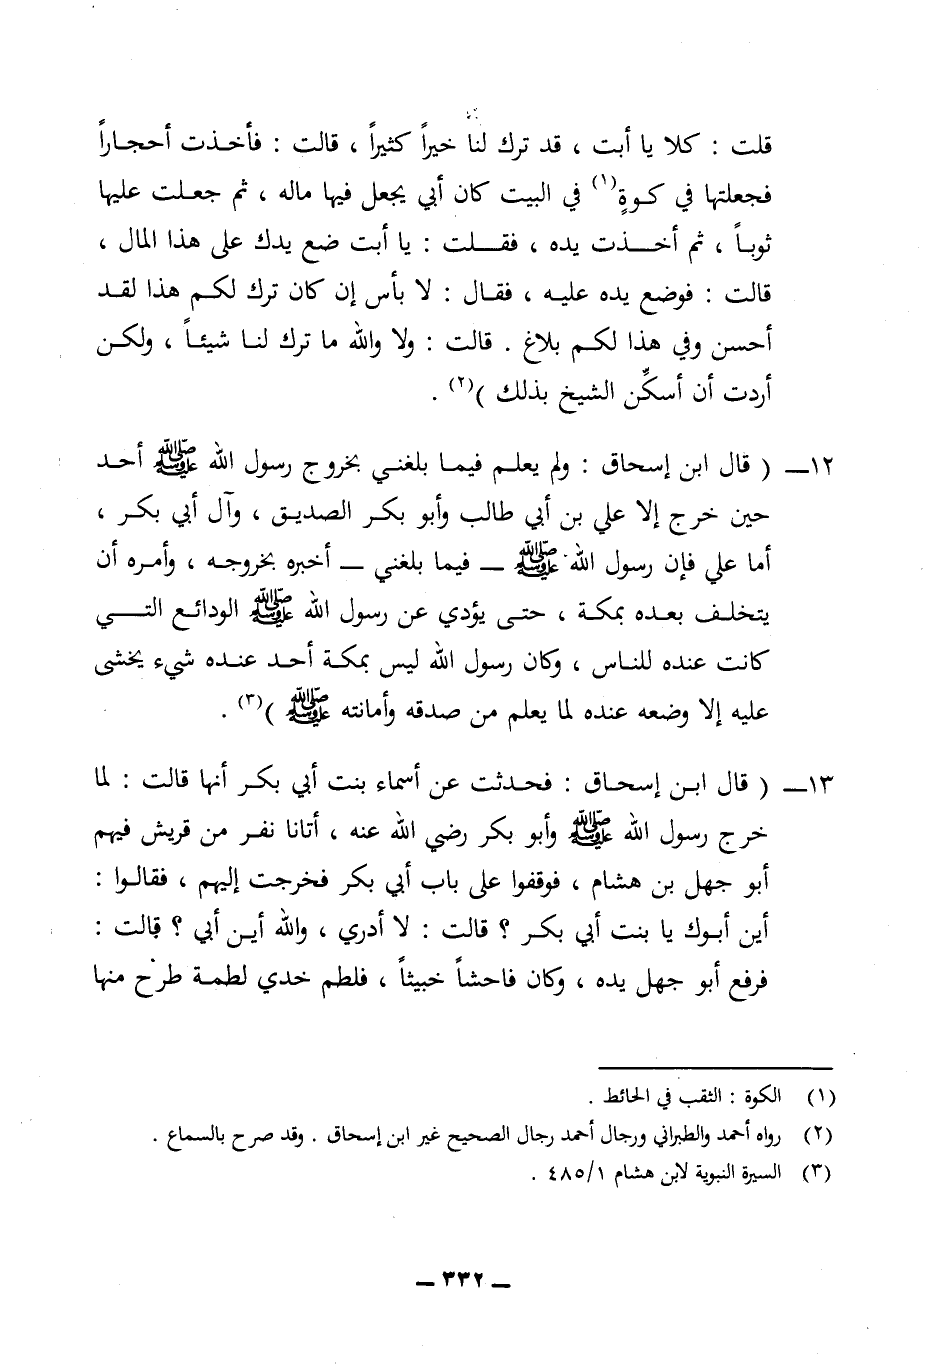 قلت : كلا يا أبت ، قد ترك لنا خيراً كثيراً ، قالت : فأخذت أحجاراً
فجعلتها في كوةٍ(١) في البيت كان أبي يجعل فيها ماله ، ثم جعلت عليها
ثوباً ، ثم أخذت يده ، فقلت : يا أبت ضع يدك على هذا المال ،
قالت : فوضع يده عليه ، فقال : لا بأس إن كان ترك لكم هذا لقد
أحسن وفي هذا لكم بلاغ . قالت : ولا والله ما ترك لنا شيئاً ، ولكن
أردت أن أسكِّن الشيخ بذلك )(٢) .
١٢ــ ( قال ابن إسحاق : ولم يعلم فيما بلغني بخروج رسول الله ﷺ أحد
حين خرج إلا علي بن أبي طالب وأبو بكر الصديق ، وآل أبي بكر ،
أما علي فإن رسول الله ﷺ ــ فيما بلغني ــ أخبره بخروجه ، وأمره أن
يتخلف بعده بمكة ، حتى يؤدي عن رسول الله ﷺ الودائع التي
كانت عنده للناس ، وكان رسول الله ليس بمكة أحد عنده شيء يخشى
عليه إلا وضعه عنده لما يعلم من صدقه وأمانته ﷺ )(٣) .
١٣ــ ( قال ابن إسحاق : فحدثت عن أسماء بنت أبي بكر أنها قالت : لما
خرج رسول الله ﷺ وأبو بكر رضي الله عنه ، أتانا نفر من قريش فيهم
أبو جهل بن هشام ، فوقفوا على باب أبي بكر فخرجت إليهم ، فقالوا :
أين أبوك يا بنت أبي بكر ؟ قالت : لا أدري ، والله أين أبي ؟ قالت :
فرفع أبو جهل يده ، وكان فاحشاً خبيثاً ، فلطم خدي لطمة طرح منها
(١) الكوة : الثقب في الحائط .
(٢) رواه أحمد والطبراني ورجال أحمد رجال الصحيح غير ابن إسحاق . وقد صرح بالسماع .
(٣) السيرة النبوية لابن هشام ٤٨٥/١ .
ــ ٣٣٢ ــ